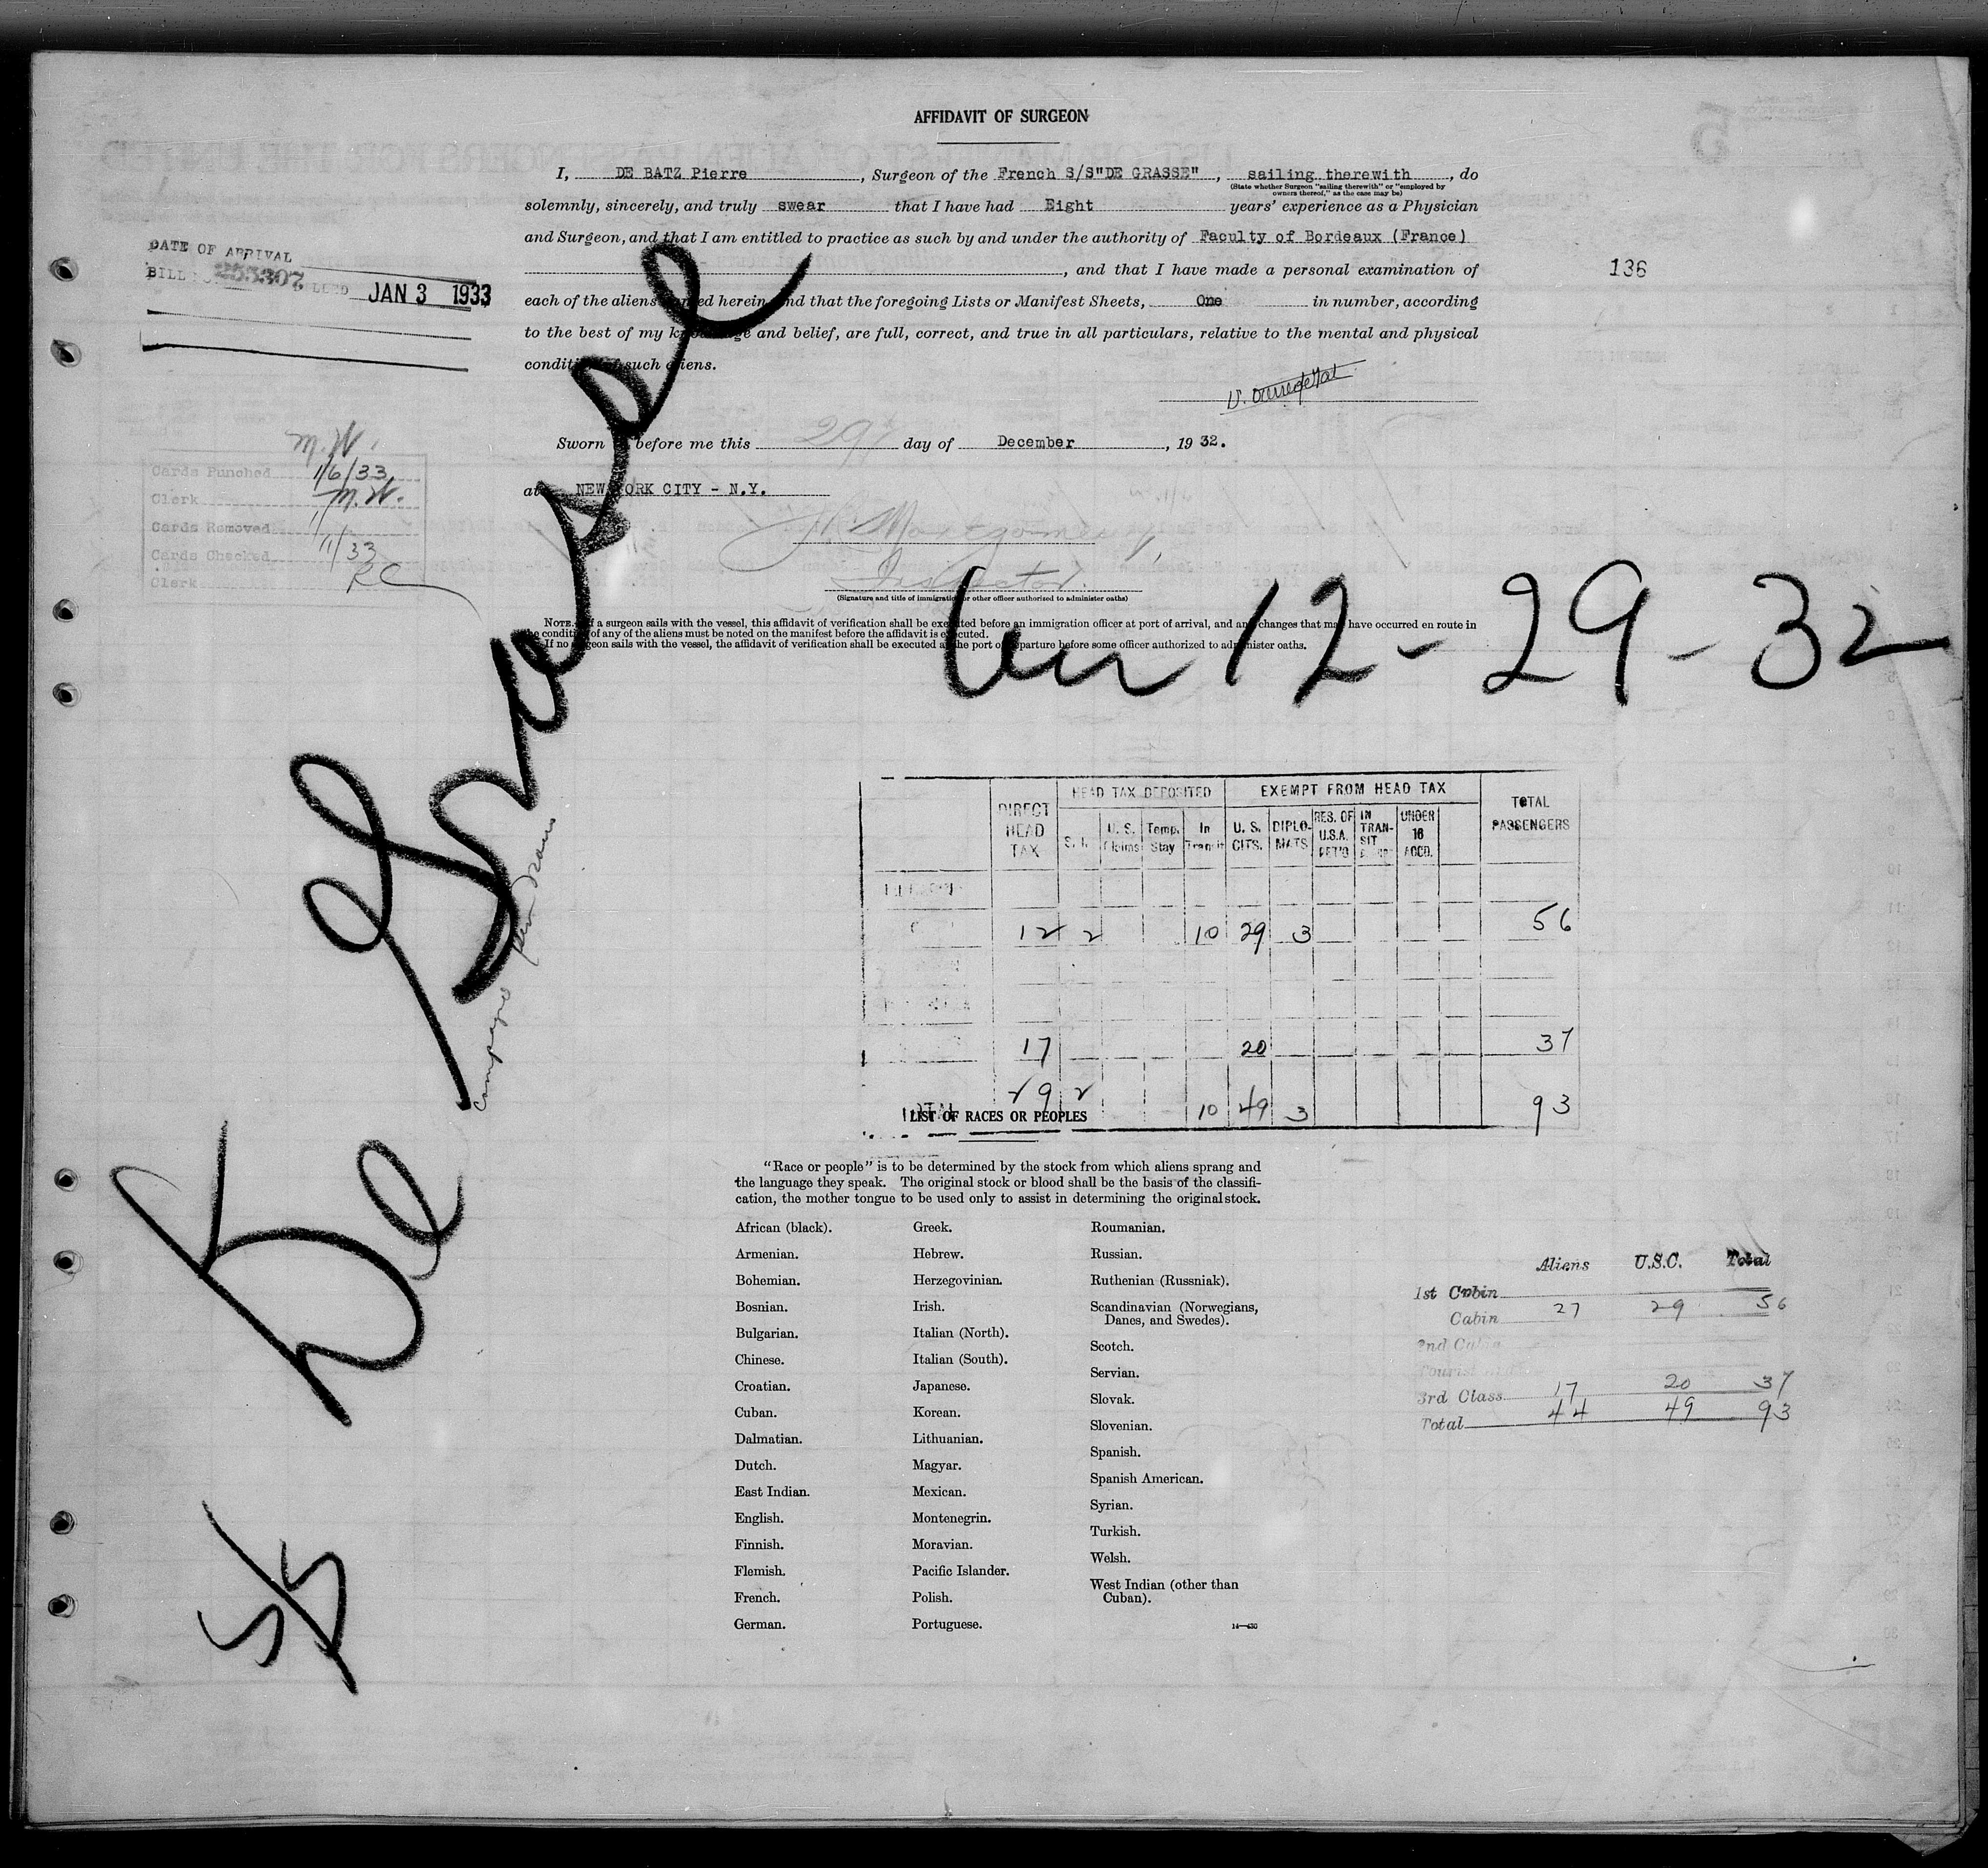 AFFIDAVIT OF SURGEON
I, DE BATZ Pierre, Surgeon of the French S/S"DE GRASSE", sailing therewith, do
(State whether Surgeon "sailing therewith" or "employed by
owners thereof," as the case may be)
solemnly, sincerely, and truly swear that I have had Eight years' experience as a Physician
and Surgeon, and that I am entitled to practice as such by and under the authority of Faculty of Bordeaux (France)
, and that I have made a personal examination of
136
each of the aliens named herein and that the foregoing Lists or Manifest Sheets, One in number, according
to the best of my knowledge and belief, are full, correct, and true in all particulars, relative to the mental and physical
condition of such aliens.
Sworn to before me this 29th day of December, 1932.
at NEW YORK CITY - N.Y.
J. R. Montgomery,
Inspector.
(Signature and title of immigration or other officer authorized to administer oaths)
NOTE.—If a surgeon sails with the vessel, this affidavit of verification shall be executed before an immigration officer at port of arrival, and any changes that may have occurred en route in
the condition of any of the aliens must be noted on the manifest before the affidavit is executed.
If no surgeon sails with the vessel, the affidavit of verification shall be executed at the port of departure before some officer authorized to administer oaths.
DATE OF ARRIVAL
BILL 255307 JAN 3 1933
M.W.
Cards Punched 1/6/33
Clerk M.W.
Cards Removed
Cards Checked 1/11/33
Clerk RC
S/S De Grasse
12-29-32
DIRECT HEAD TAX
HEAD TAX DEPOSITED
S. I. U. S. Claims Temp. Stay In Transit
EXEMPT FROM HEAD TAX
U. S. CITS. DIPLO-MATS RES. OF U.S.A. RET'G IN TRAN-SIT UNDER 16 ACCD.
TOTAL PASSENGERS
12 2 10 29 3 56
17 20 37
TOTAL 29 2 10 49 3 93
LIST OF RACES OR PEOPLES
"Race or people" is to be determined by the stock from which aliens sprang and
the language they speak. The original stock or blood shall be the basis of the classifi-
cation, the mother tongue to be used only to assist in determining the original stock.
African (black).
Armenian.
Bohemian.
Bosnian.
Bulgarian.
Chinese.
Croatian.
Cuban.
Dalmatian.
Dutch.
East Indian.
English.
Finnish.
Flemish.
French.
German.
Greek.
Hebrew.
Herzegovinian.
Irish.
Italian (North).
Italian (South).
Japanese.
Korean.
Lithuanian.
Magyar.
Mexican.
Montenegrin.
Moravian.
Pacific Islander.
Polish.
Portuguese.
Roumanian.
Russian.
Ruthenian (Russniak).
Scandinavian (Norwegians,
Danes, and Swedes).
Scotch.
Servian.
Slovak.
Slovenian.
Spanish.
Spanish American.
Syrian.
Turkish.
Welsh.
West Indian (other than
Cuban).
14—430
Aliens U.S.C. Total
1st Cabin
Cabin 27 29 56
2nd Cabin
Tourist
3rd Class 17 20 37
Total 44 49 93